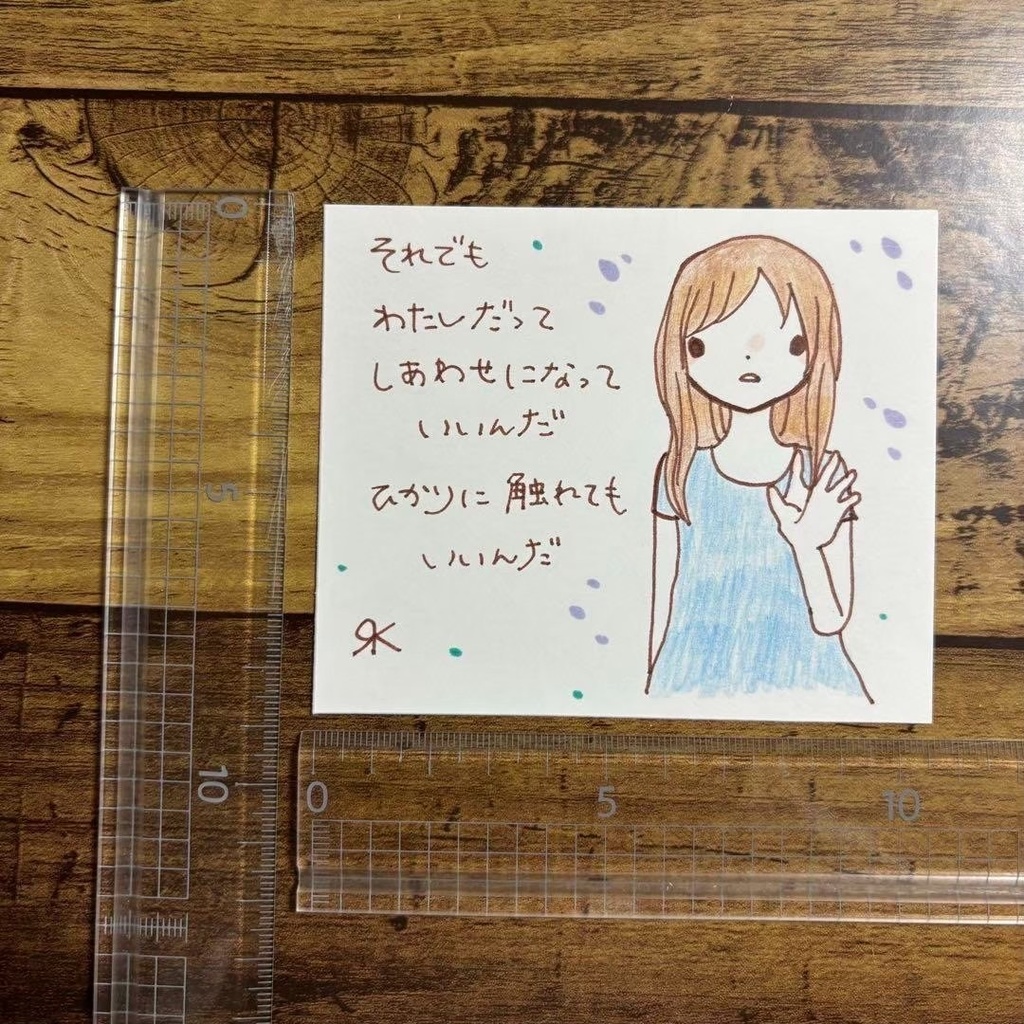 それでも
わたしだって
しあわせになって
いいんだ
ひかりに触れても
いいんだ
RK
0
5
10
0
5
10